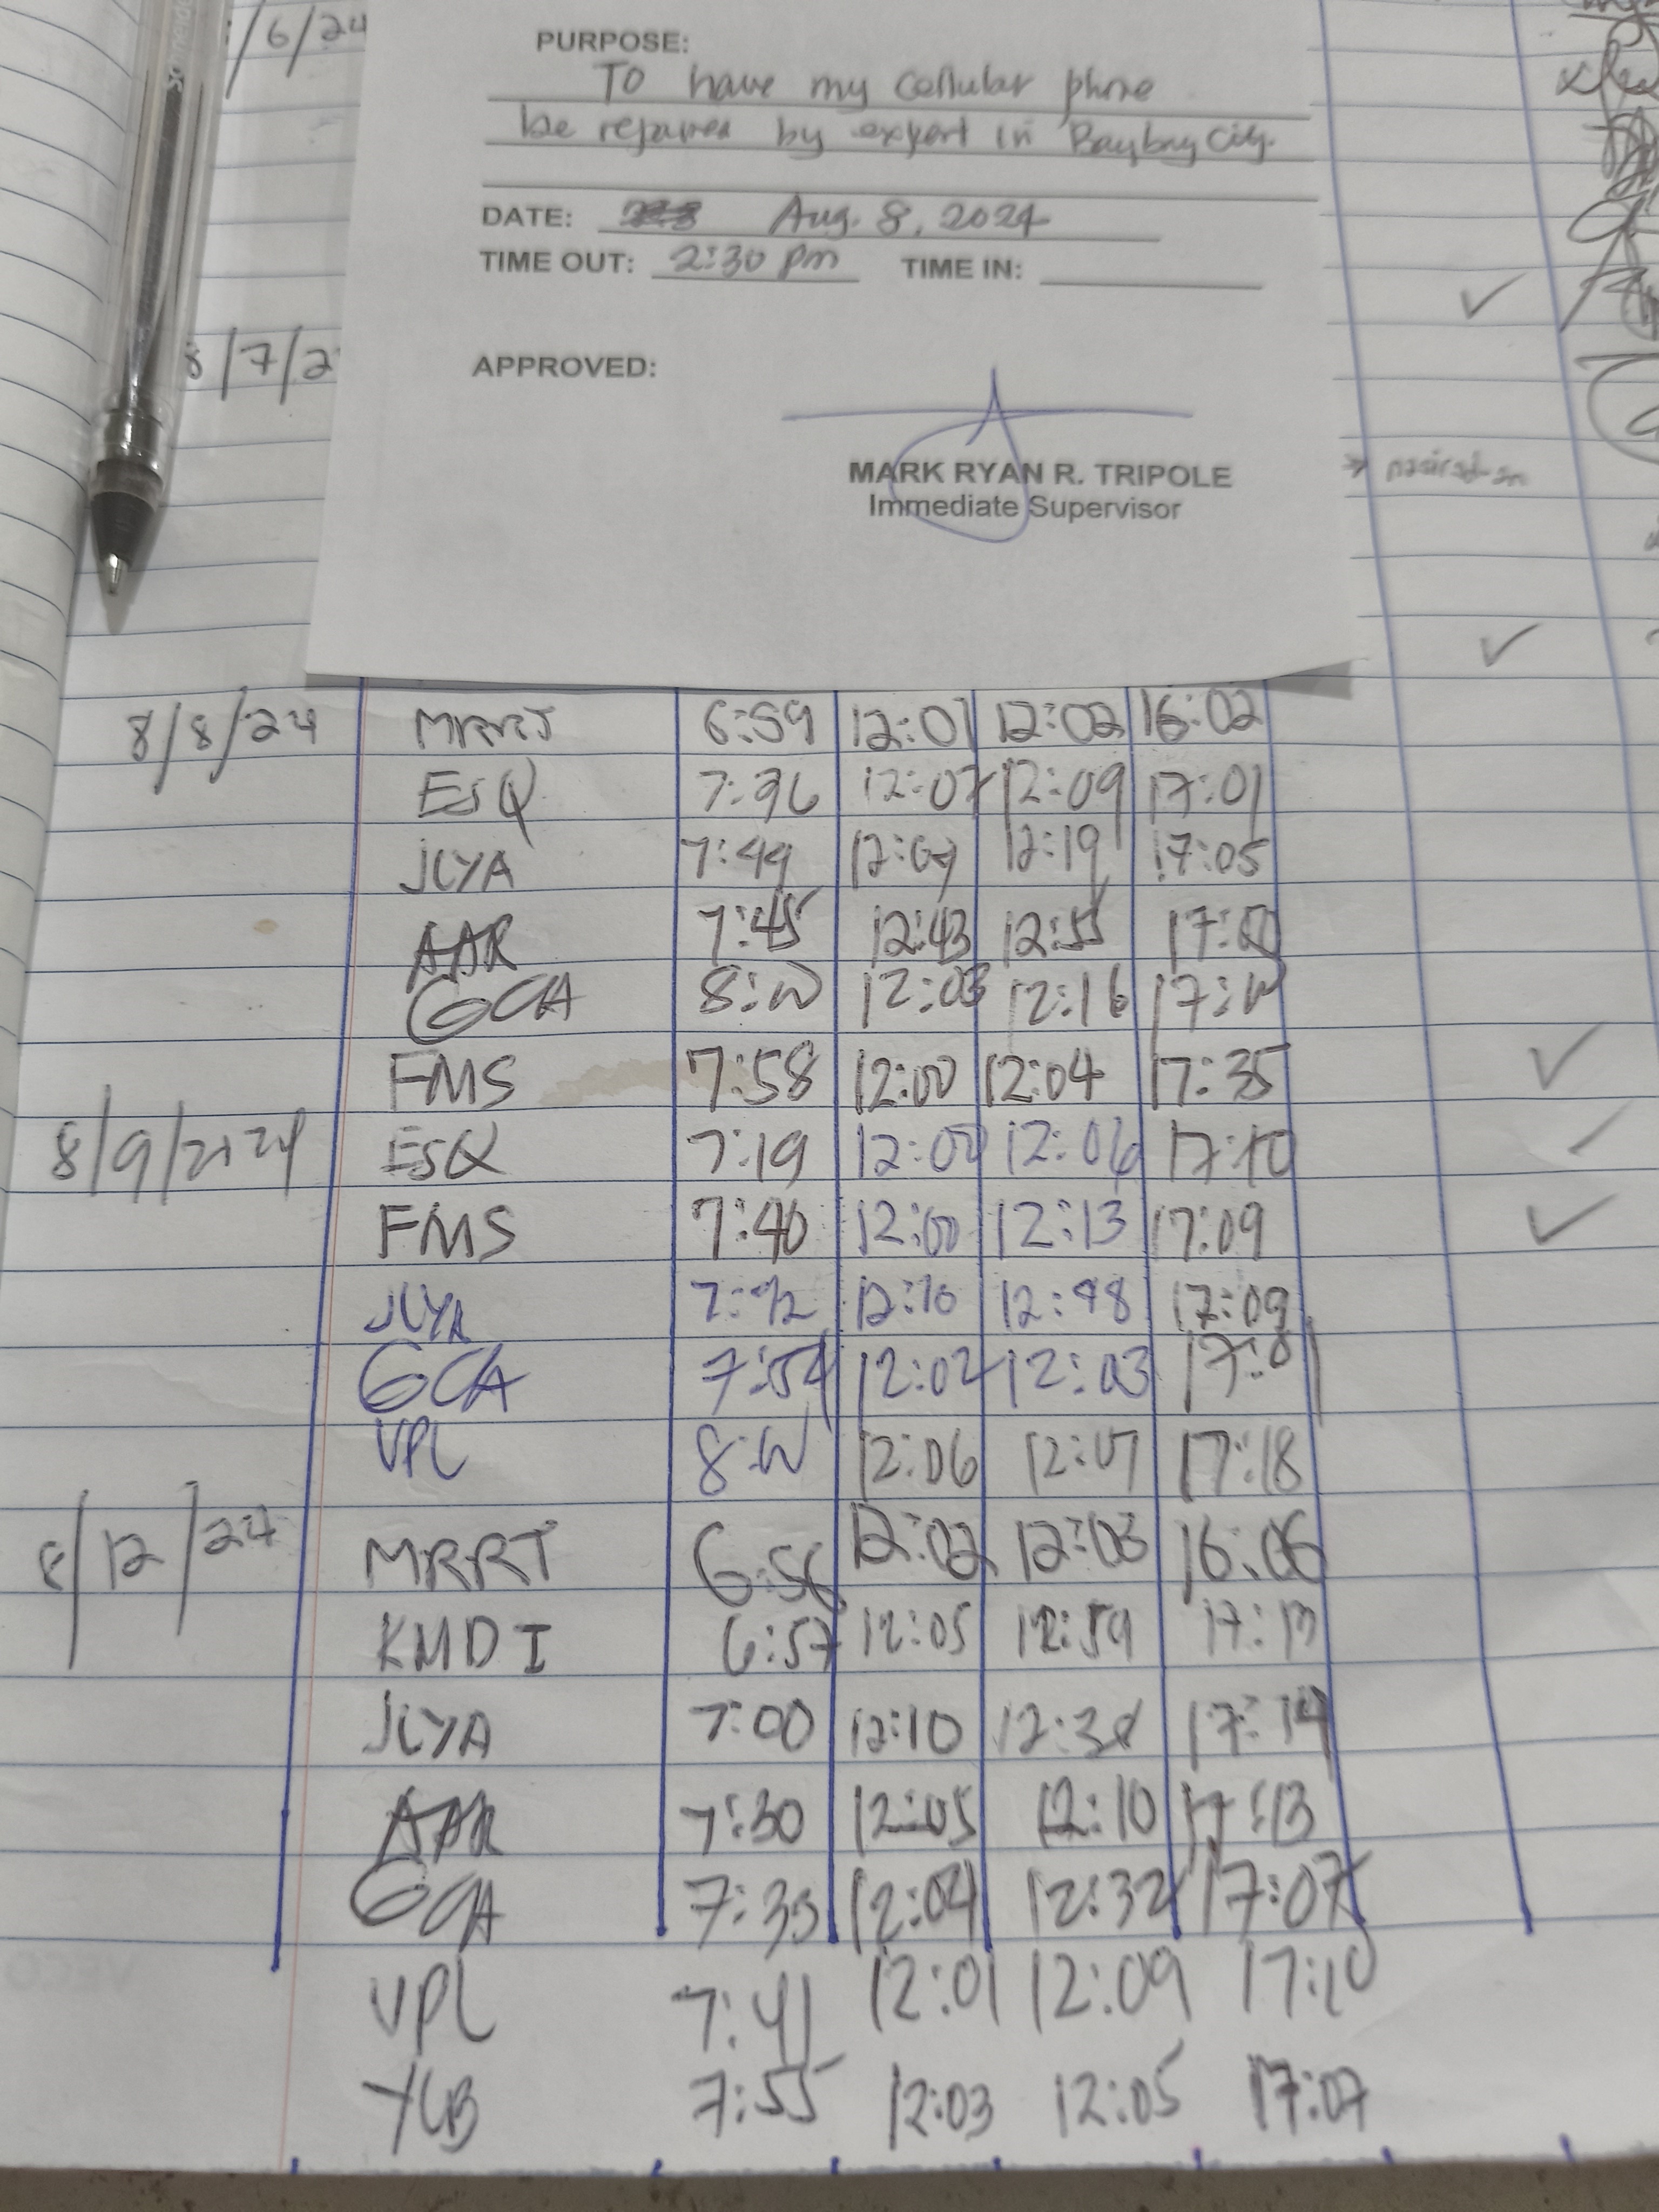 /6/24
PURPOSE:
To have my cellular phone
be repaired by expert in Baybay City.
DATE: Aug. 8, 2024
TIME OUT: 2:30 pm TIME IN:
8/7/2
APPROVED:
MARK RYAN R. TRIPOLE
Immediate Supervisor
8/8/24 MRRT 6:59 12:01 12:02 16:02
ESQ 7:36 12:07 12:09 17:01
JLYA 7:49 12:09 12:19 17:05
AAR 7:45 12:43 12:55
GCA 8:00 12:03 12:16
FMS 7:58 12:00 12:04 17:35
8/9/2024 ESQ 7:19 12:00 12:06 17:10
FMS 7:40 12:00 12:13 17:09
JLYA 7:42 12:10 12:48 17:09
GCA 7:54 12:02 12:03 17:01
VPL 8:00 12:06 12:07 17:18
8/12/24 MRRT 6:56 12:02 12:03 16:06
KMDI 6:57 12:05 12:59 17:13
JLYA 7:00 12:10 17:14
AAR 7:30 12:05 12:10 17:13
GCA 7:35 12:04 12:32 17:07
VPL 7:41 12:01 12:09 17:10
YLB 7:55 12:03 12:05 17:07
VECO